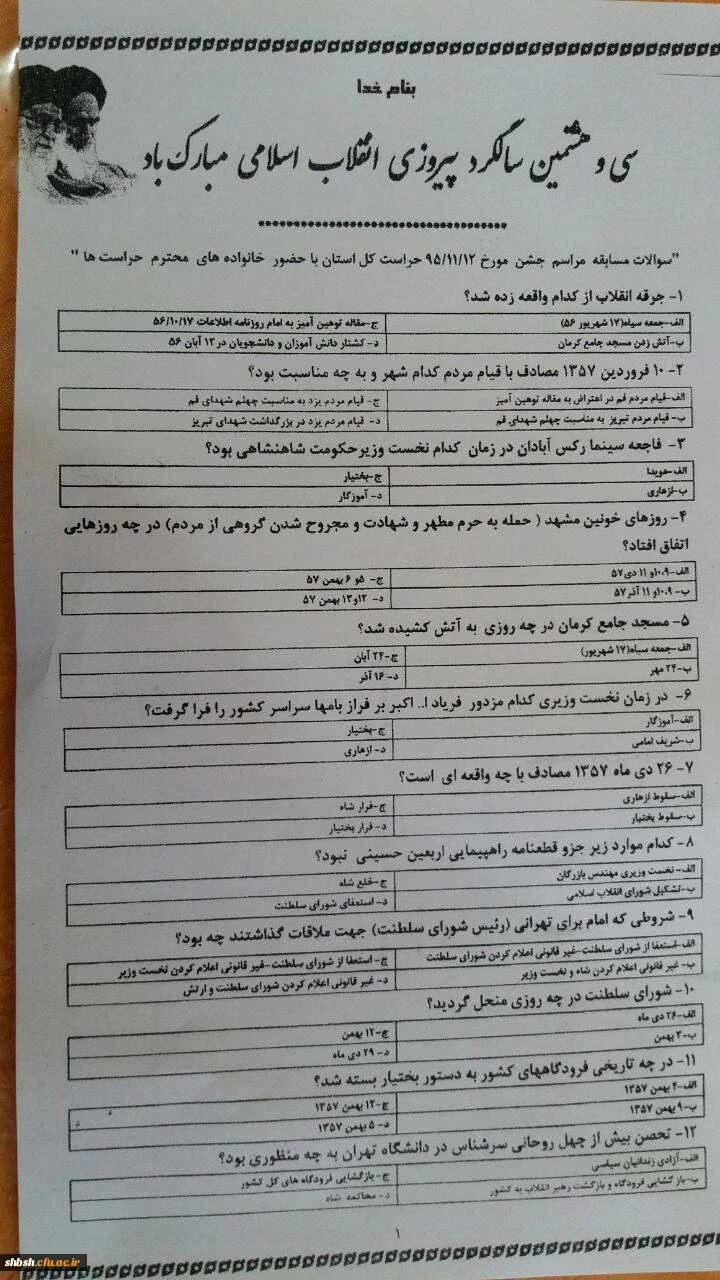 بنام خدا
سی و هشتمین سالگرد پیروزی انقلاب اسلامی مبارک باد
"سوالات مسابقه مراسم جشن مورخ ۹۵/۱۱/۱۲ حراست کل استان با حضور خانواده های محترم حراست ها "
۱- جرقه انقلاب از کدام واقعه زده شد؟
الف-جمعه سیاه(۱۷ شهریور ۵۶) ج-مقاله توهین آمیز به امام روزنامه اطلاعات ۵۶/۱۰/۱۷
ب-آتش زدن مسجد جامع کرمان د- کشتار دانش آموزان و دانشجویان در ۱۳ آبان ۵۶
۲- ۱۰ فروردین ۱۳۵۷ مصادف با قیام مردم کدام شهر و به چه مناسبت بود؟
الف-قیام مردم قم در اعتراض به مقاله توهین آمیز ج- قیام مردم یزد به مناسبت چهلم شهدای قم
ب- قیام مردم تبریز به مناسبت چهلم شهدای قم د- قیام مردم یزد در بزرگداشت شهدای تبریز
۳- فاجعه سینما رکس آبادان در زمان کدام نخست وزیرحکومت شاهنشاهی بود؟
الف-هویدا ج-بختیار
ب-ازهاری د- آموزگار
۴- روزهای خونین مشهد ( حمله به حرم مطهر و شهادت و مجروح شدن گروهی از مردم) در چه روزهایی
اتفاق افتاد؟
الف-۱۰،۹و ۱۱ دی۵۷ ج- ۵و ۶ بهمن ۵۷
ب- ۱۰،۹و ۱۱ آذر۵۷ د- ۱۲و۱۳ بهمن ۵۷
۵- مسجد جامع کرمان در چه روزی به آتش کشیده شد؟
الف-جمعه سیاه(۱۷ شهریور) ج-۲۴ آبان
ب-۲۴ مهر د-۱۶ آذر
۶- در زمان نخست وزیری کدام مزدور فریاد ا.. اکبر بر فراز بامها سراسر کشور را فرا گرفت؟
الف-آموزگار ج-بختیار
ب-شریف امامی د-ازهاری
۷- ۲۶ دی ماه ۱۳۵۷ مصادف با چه واقعه ای است؟
الف-سقوط ازهاری ج-فرار شاه
ب-سقوط بختیار د- فرار بختیار
۸- کدام موارد زیر جزو قطعنامه راهپیمایی اربعین حسینی نبود؟
الف- نخست وزیری مهندس بازرگان ج-خلع شاه
ب-تشکیل شورای انقلاب اسلامی د- استعفای شورای سلطنت
۹- شروطی که امام برای تهرانی (رئیس شورای سلطنت) جهت ملاقات گذاشتند چه بود؟
الف-استعفا از شورای سلطنت-غیر قانونی اعلام کردن شورای سلطنت ج- استعفا از شورای سلطنت-غیر قانونی اعلام کردن نخست وزیر
ب- غیر قانونی اعلام کردن شاه و نخست وزیر د- غیر قانونی اعلام کردن شورای سلطنت و ارتش
۱۰- شورای سلطنت در چه روزی منحل گردید؟
الف-۲۶ دی ماه ج-۱۲ بهمن
ب-۳ بهمن د- ۲۹ دی ماه
۱۱- در چه تاریخی فرودگاههای کشور به دستور بختیار بسته شد؟
الف-۴ بهمن ۱۳۵۷ ج-۱۲ بهمن ۱۳۵۷
ب-۹ بهمن ۱۳۵۷ د- ۵ بهمن ۱۳۵۷
۱۲- تحصن بیش از چهل روحانی سرشناس در دانشگاه تهران به چه منظوری بود؟
الف-آزادی زندانیان سیاسی ج- بازگشایی فرودگاه های کل کشور
ب-باز گشایی فرودگاه و بازگشت رهبر انقلاب به کشور د- محاکمه شاه
۱
shbsh.cfu.ac.ir